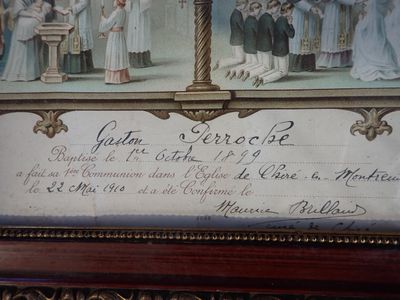 Gaston Perroche
Baptisé le 1er Octobre 1899
a fait sa 1ère Communion dans l'Eglise de Cheré en Montreuil
le 22 Mai 1910 et a été Confirmé le
Maurice Brilland